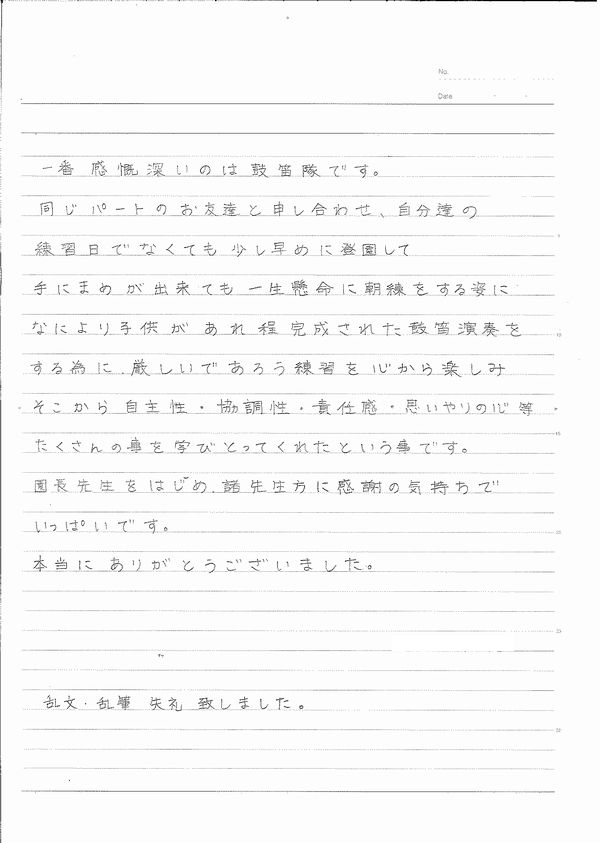 No.
Date
一番 感慨深いのは 鼓笛隊です。
同じパートのお友達と申し合わせ、自分達の
練習日でなくても少し早めに登園して
手にまめが出来ても一生懸命に朝練をする姿に
なにより子供があれ程完成された鼓笛演奏を
する為に、厳しいであろう練習を心から楽しみ
そこから自主性・協調性・責任感・思いやりの心等
たくさんの事を学びとってくれたという事です。
園長先生をはじめ、諸先生方に感謝の気持ちで
いっぱいです。
本当にありがとうございました。
乱文・乱筆 失礼致しました。